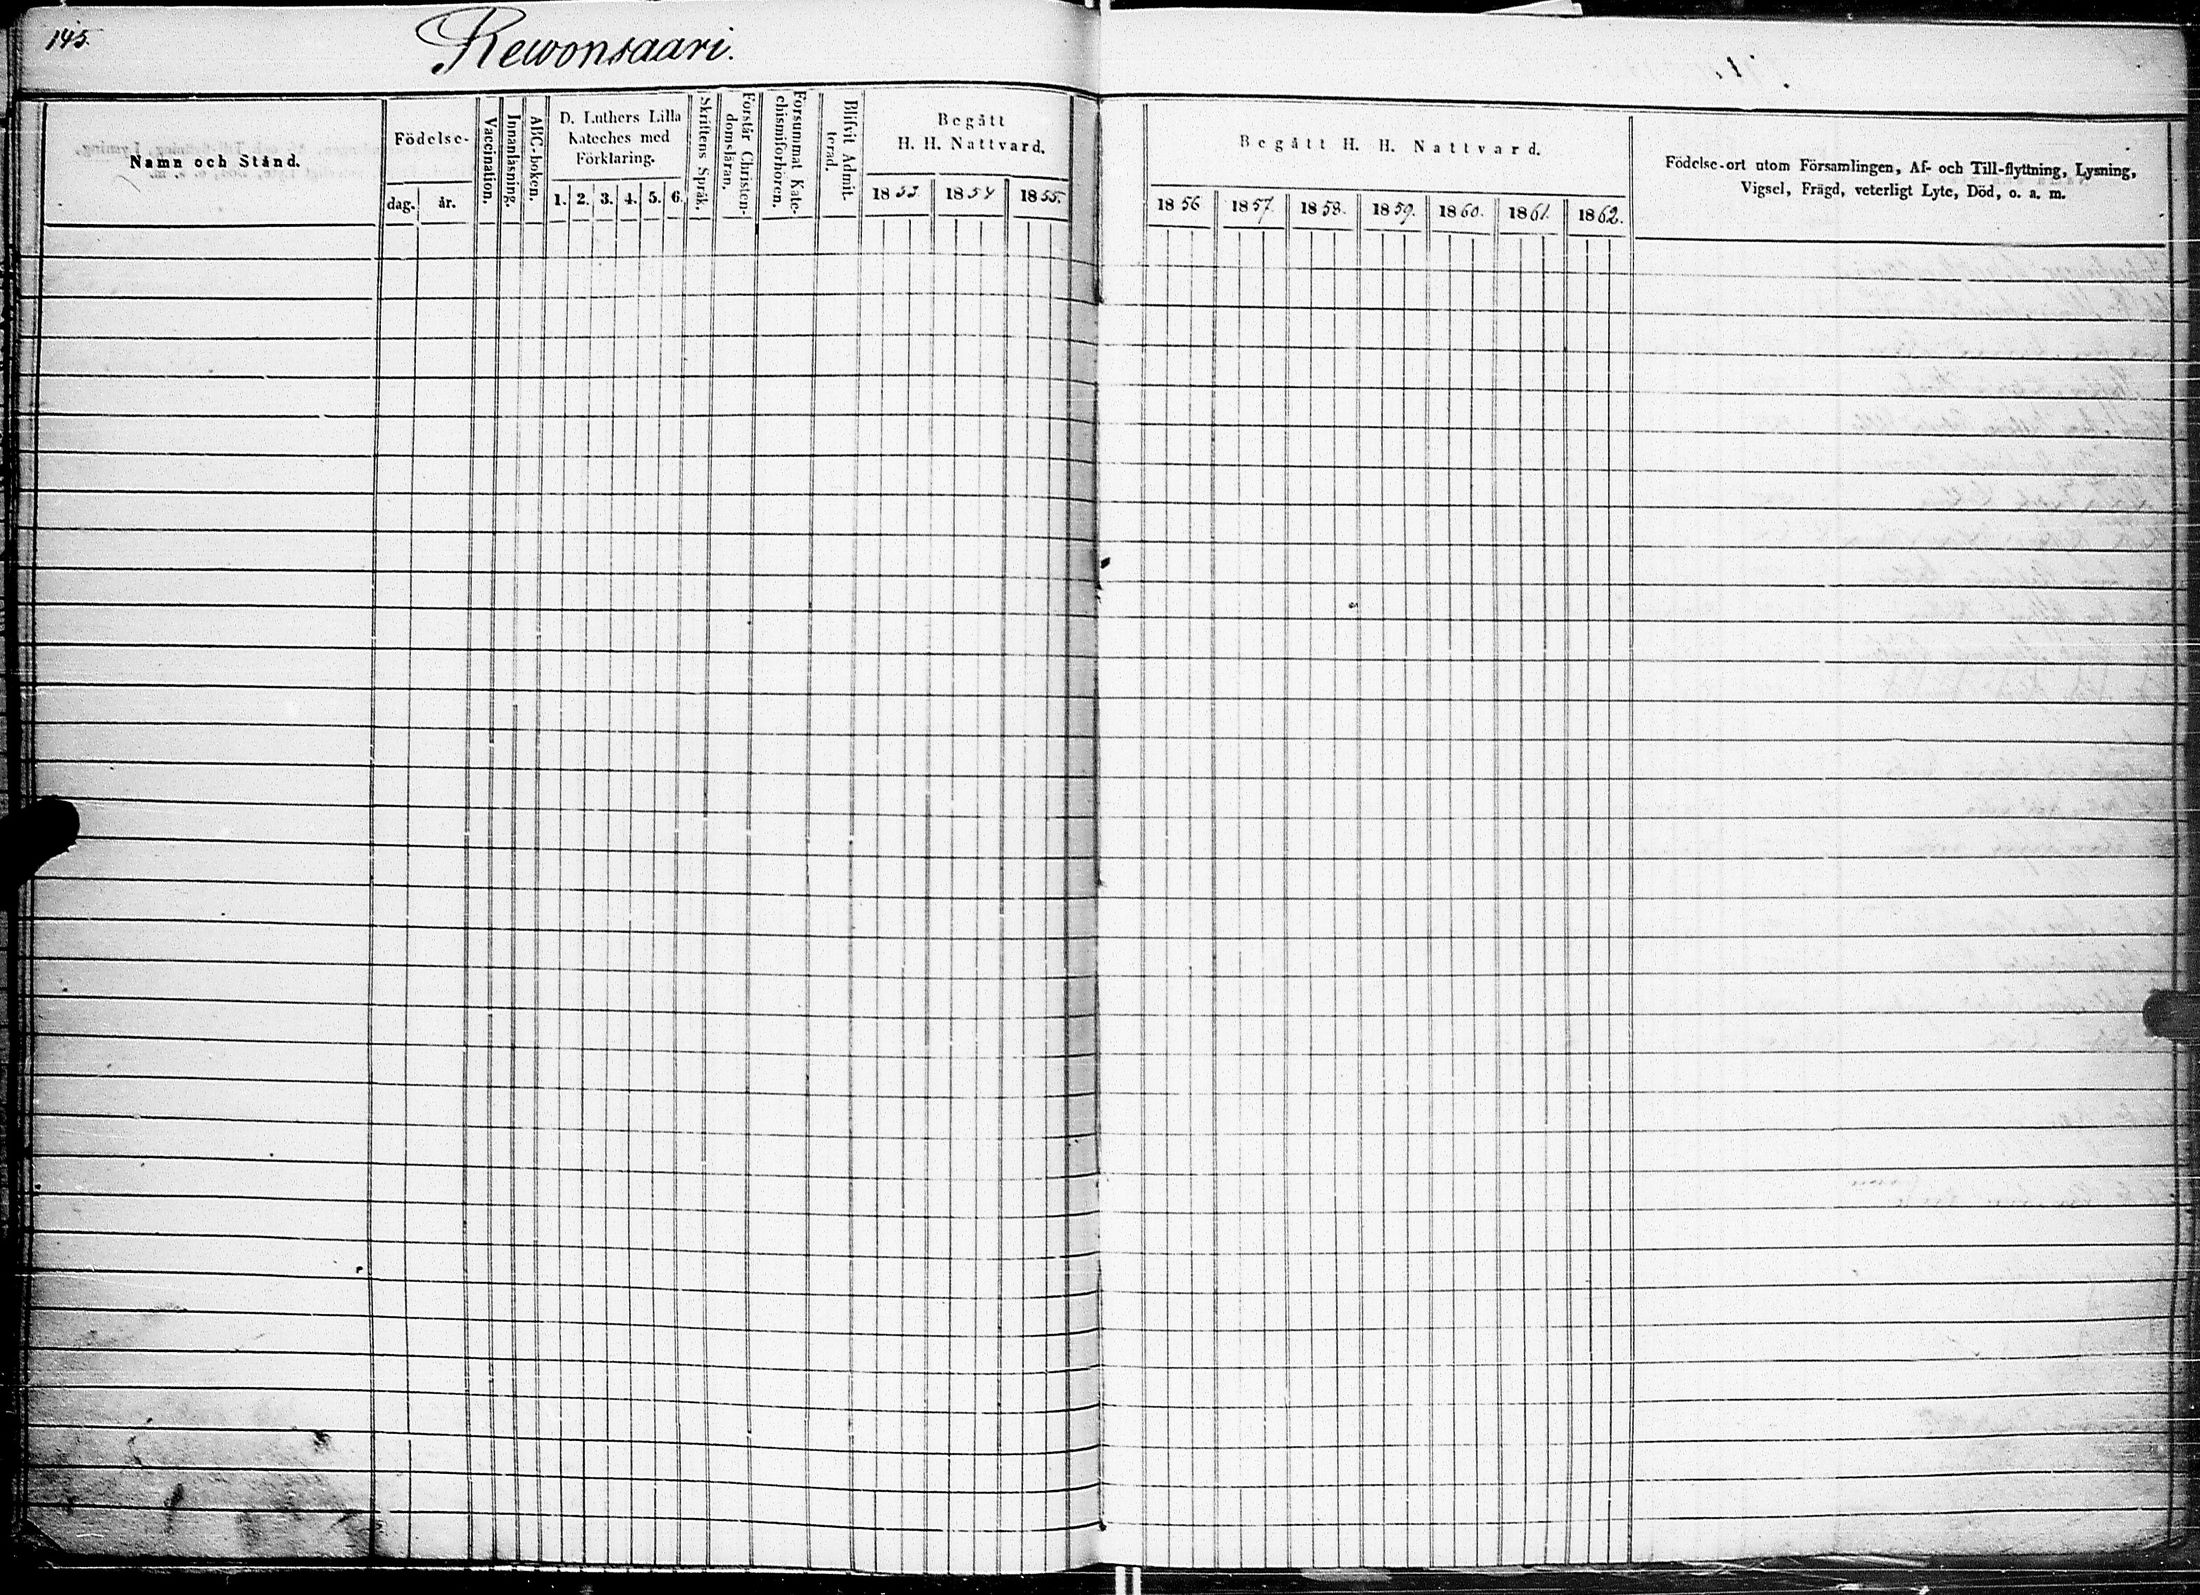 145.
Rewonsaari.
Namn och Stånd.
Födelse-
dag.
år.
Vaccination.
Innanläsning.
ABC-boken.
D. Luthers Lilla
Kateches med
Förklaring.
1. 2. 3. 4. 5. 6.
Skriftens Språk.
Förstår Christen-
domsläran.
Försummat Kate-
chismiförhören.
Blifvit Admit-
terad.
Begått
H. H. Nattvard.
1853 1854 1855.
Begått H. H. Nattvard.
1856 1857. 1858. 1859. 1860. 1861. 1862.
Födelse-ort utom Församlingen, Af- och Till-flyttning, Lysning,
Vigsel, Frägd, veterligt Lyte, Död, o. a. m.